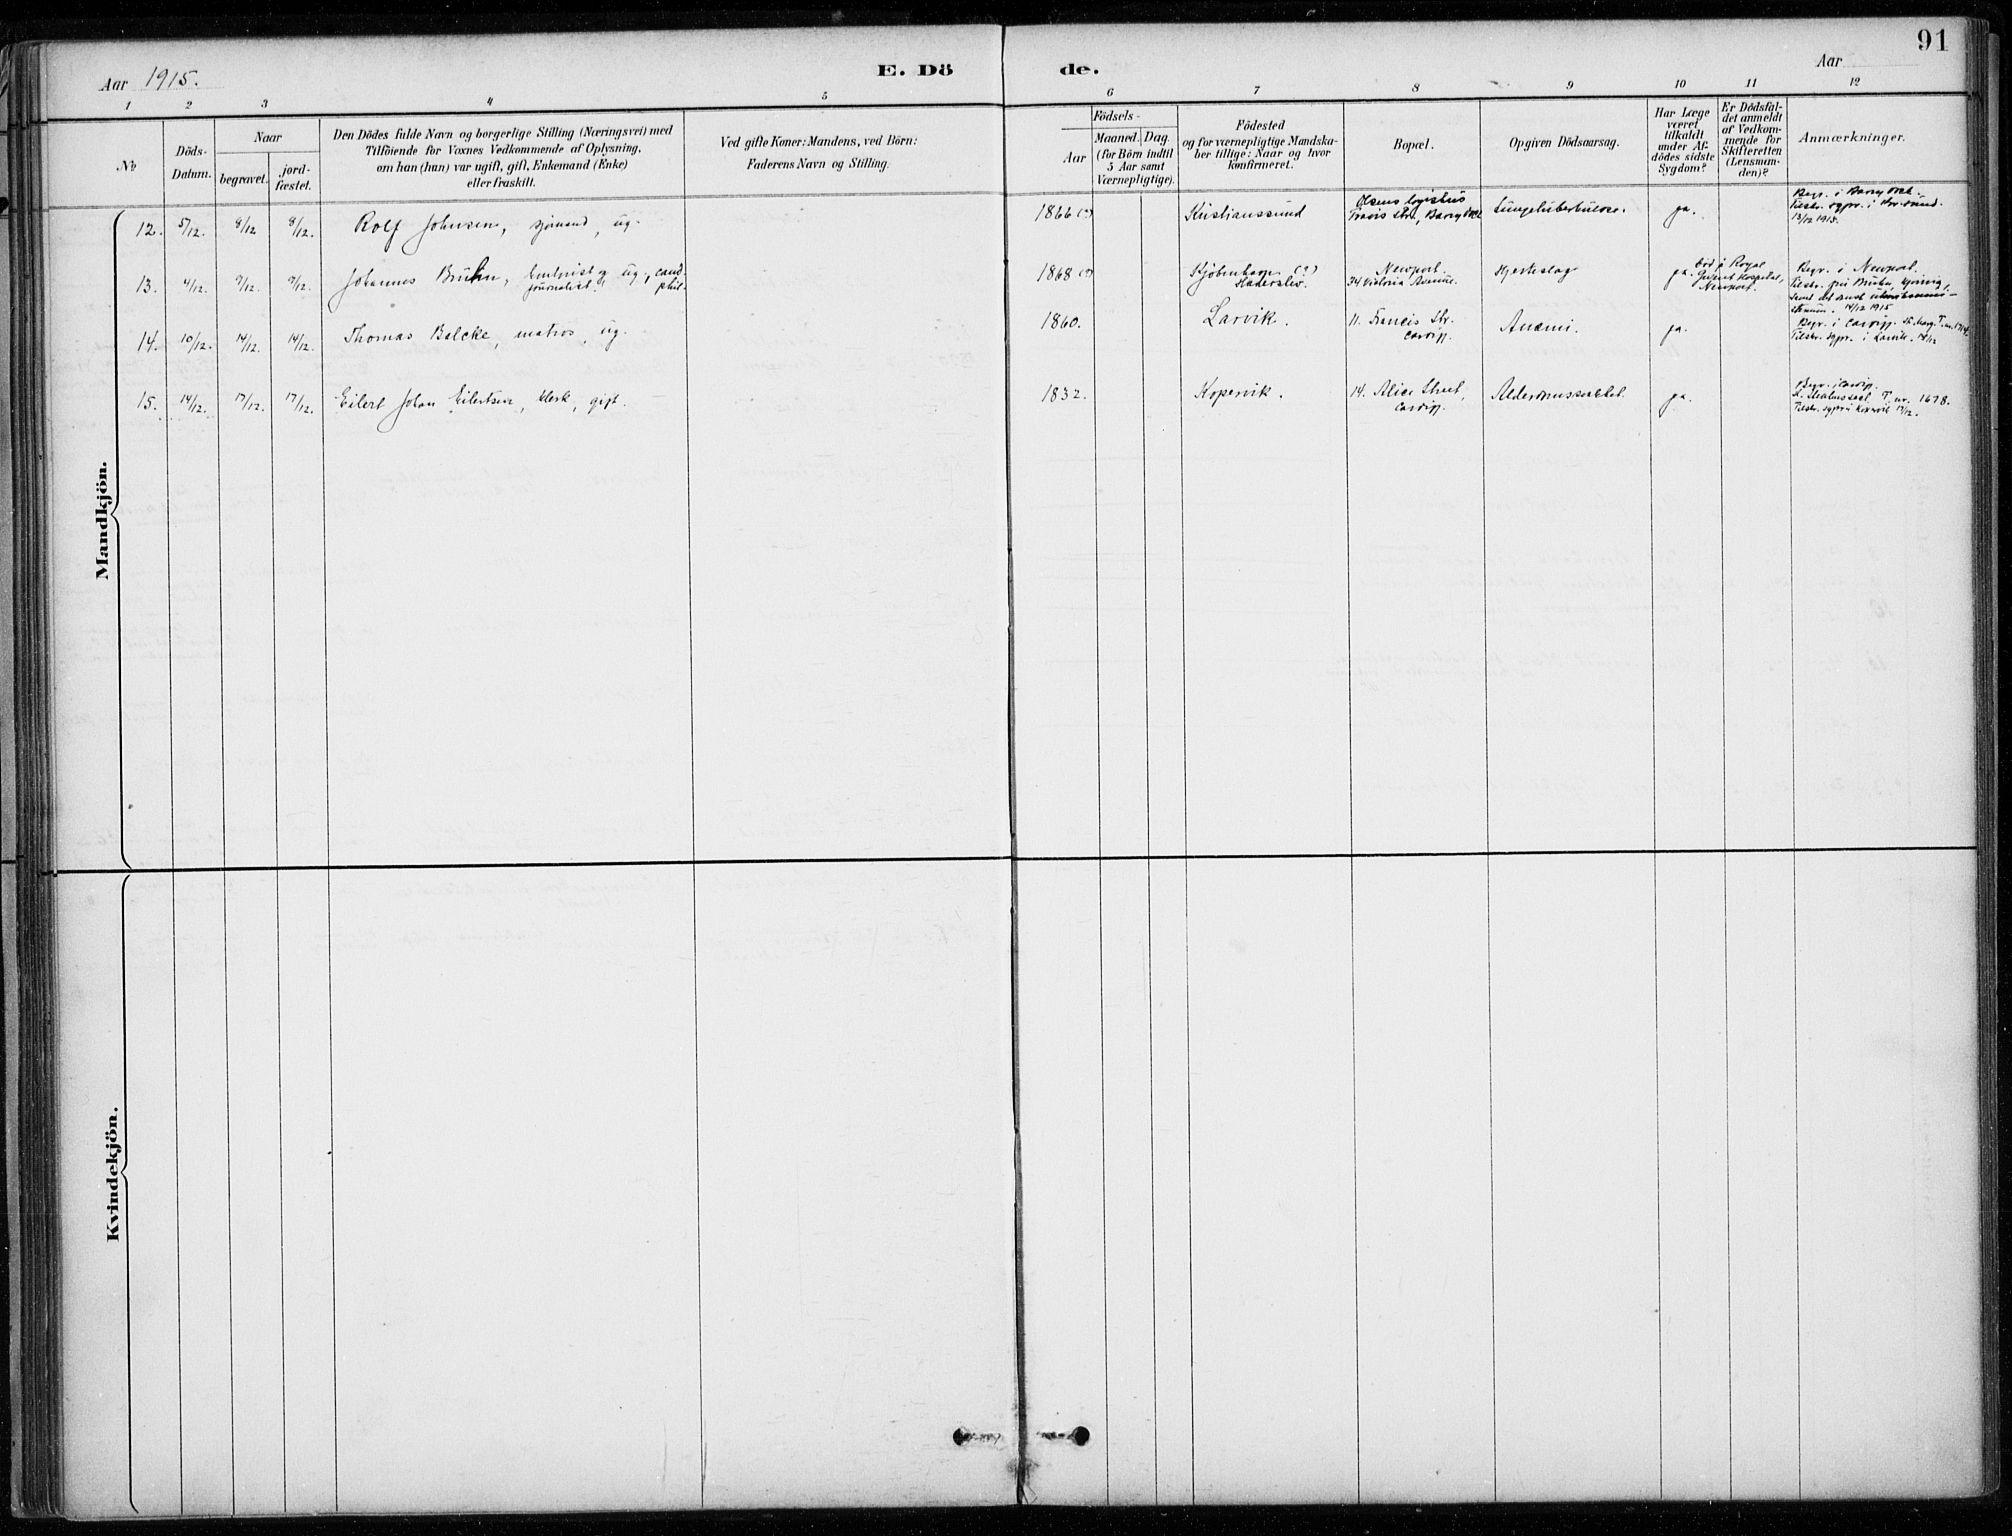 91
Aar 1915.
E. Dö
de.
Aar
1
2
3
4
5
6
7
8
9
10
11
12
No
Döds-
Datum.
Naar
begravet.
jord-
fæstet.
Den Dödes fulde Navn og borgerlige Stilling (Næringsvei) med
Tilföiende for Voxnes Vedkommende af Oplysning,
om han (hun) var ugift, gift, Enkemand (Enke)
eller fraskilt.
Ved gifte Koner: Mandens, ved Börn:
Faderens Navn og Stilling.
Födsels-
Aar
Maaned.
Dag.
(for Börn indtil
5 Aar samt
Værnepligtige).
Födested
og for værnepligtige Mandska-
ber tillige: Naar og hvor
konfirmeret.
Bopæl.
Opgiven Dödsaarsag.
Har Læge
været
tilkaldt
under Af-
dödes sidste
Sygdom?
Er Dödsfal-
det anmeldt
af Vedkom-
mende for
Skifteretten
(Lensman-
den)?
Anmærkninger.
Mandkjön.
12. 5/12. 8/12 8/12. Rolf Johnsen, sjömand, ug.
1866 (?) Kristianssund
Olsens logishus
Travis Str., Barry Dock
Lungetuberkulose.
ja.
Begr. i Barry Dock.
Tilskr. sgpr. i Kr.sund.
13/12 1915.
13. 4/12. 9/12. 9/12. Johannes Bruhn, kontorist og journalist, ug., cand. phil.
1868 (?) Kjöbenhavn (?)
Haderslev.
Newport.
34 Victoria Avenue.
Hjerteslag
ja.
död i Royal
Gwent Hospital,
Newport.
Begr. i Newport.
Tilskr. fru Bruhn, Hjörring,
samt det dansk
14/12 1915
14. 10/12. 14/12. 14/12. Thomas Balcke, matros, ug.
1860. Larvik.
11. Francis Str.
Cardiff.
Anæmi.
ja.
Begr. i Cardiff.
Tilskr. sgpr. i Larvik.
15. 14/12. 17/12. 17/12. Eilert Johan Eilertsen, klerk, gift.
1832. Kopervik.
14. Alice Street,
Cardiff.
Alderdomssvakhet.
ja.
Begr. i Cardiff.
T. nr. 1678.
Tilskr. sgpr. i Kopervik 17/12.
Kvindekjön.